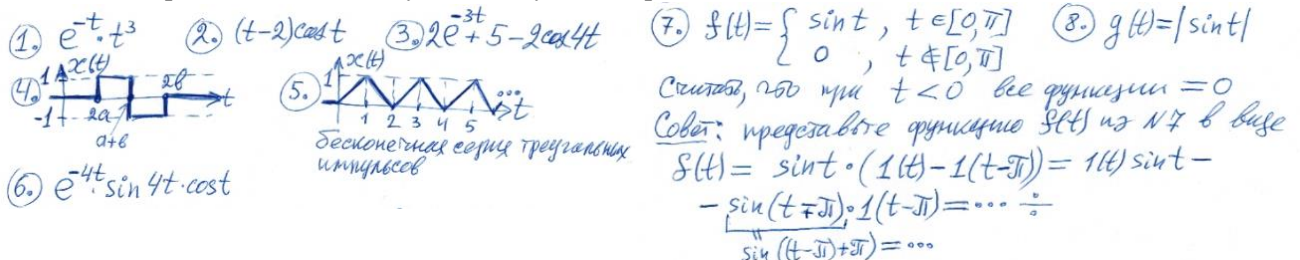 1. e^{-t}·t^3 2. (t-2)cost 3. 2e^{-3t}+5-2cos4t
4. 1 x(t) 2в t
-1 2a
a+в
5. x(t) 1 ... t
1 2 3 4 5
бесконечная серия треугольных
импульсов
6. e^{-4t}·sin4t·cost
7. f(t)= { sint, t∈[0,π]
0, t∉[0,π]
8. g(t)=|sint|
Считать, что при t<0 все функции =0
Совет: представьте функцию f(t) из N7 в виде
f(t)= sint·(1(t)-1(t-π))=1(t)sint-
- sin(t∓π)·1(t-π)=... ÷
sin((t-π)+π)=...